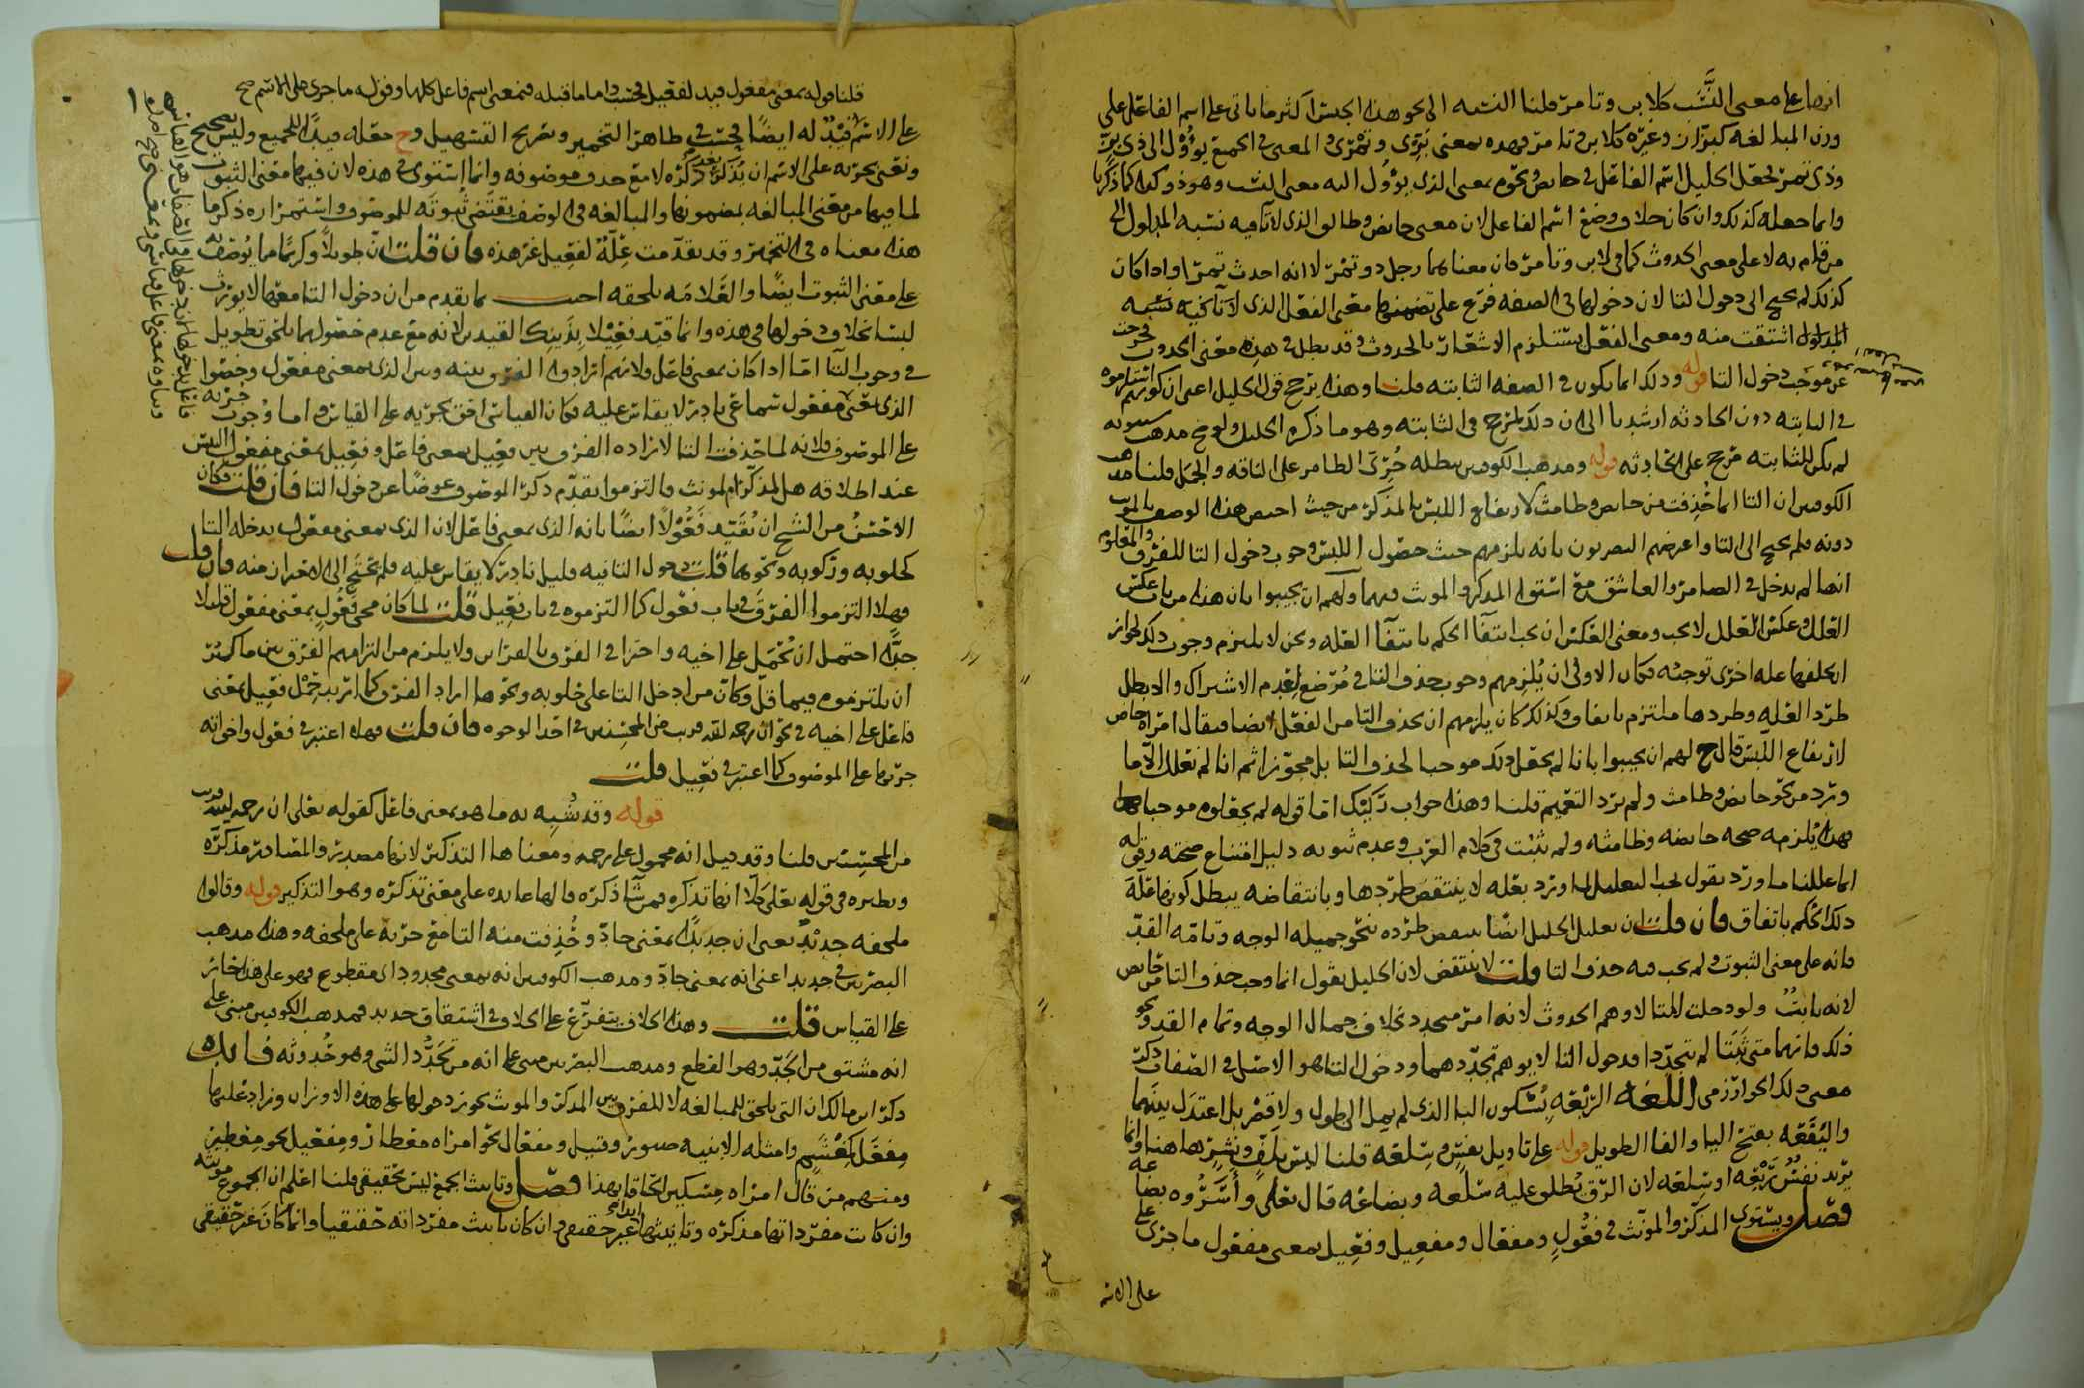 انها على معنى النسب كلابن وتامر قلنا النسبه الى نحو هذا الجنس اكثر ما ياتى على اسم الفاعل على
وزن المبالغه كبزاز وغيره كلابن وتامر فهذه بمعنى
وذى تمر فجعل الخليل اسم الفاعل فى حايض ونحوه بمعنى الذى يؤول اليه معنى النسب وهو ذو كذا كما ذكرنا
وانما جعله كذلك وان كان خلاف وضع اسم الفاعل لان معنى حايض وطالق الذى لا تا فيه نسبه المدلول الى
من قام به لا على معنى الحدوث كما فى لابن وتامر فان معناهما رجل ذو تمر لا انه احدث تمرا واذا كان
كذلك لم يحتج الى دخول التا لان دخولها فى الصفه فرع على تضمنها معنى الفعل الذى لا تا فيه نسبه
المدلول اشتقت منه ومعنى الفعل يستلزم الاشعار بالحدوث وقد بطل فى هذه معنى الحدوث فخرجت
عن موجب دخول التا قوله وذلك انما يكون فى الصفه الثابته قلنا وهذا يرجح قول الخليل اعنى ان كونهم
فى الثابته دون الحادثه ارشدنا الى ان ذلك لمرجح فى الثابته وهو ما ذكره الخليل
لم يكن للثابته مرجح على الحادثه قوله ومذهب الكوفيين يبطله جرى الضامر على الناقه والجمل قلنا مذهب
الكوفيين ان التا انما حذفت من حايض وطامث لارتفاع اللبس بالمذكر من حيث اختص هذا الوصف بالمونث
دونه فلم يحتج الى التا واعترضهم البصريون بانه يلزمهم حيث حصول اللبس وجوب دخول التا للفرق والمعلوم
انها لم تدخل فى الضامر والعاشق مع استوا المذكر والمونث فيهما ولهم ان يجيبوا بان هذا من باب عكس
العلل وعكس العلل لا يجب ومعنى العكس ان يجب انتفا الحكم بانتفا العله ونحن لا نلتزم وجوب ذلك لجواز
ان يخلفها عله اخرى توجبه فكان الاولى ان يلزمهم وجوب حذف التا فى مرضع لعدم الاشتراك والا بطل
طرد العله وطردها ملتزم باتفاق وكذلك كان يلزمهم ان تحذف التا من الفعل ايضا فيقال امراه حاض
لارتفاع اللبس قال ح لهم ان يجيبوا بانا لم نجعل ذلك موجبا لحذف التا بل مجوزا ثم انا لم نعلل الا ما
ورد من نحو حايض وطامث ولم نرد التعميم قلنا وهذا جواب ركيك اما قوله لم يجعلوه موجبا
فهذا يلزمه صحه حايضه وطامثه ولم تثبت فى كلام العرب وعدم ثبوته دليل امتناع صحته وقوله
انما عللنا ما ورد نقول يجب التعليل لما ورد بعله لا ينتقض طردها وبانتقاضه يبطل كونها علة
ذلك الحكم باتفاق فان قلت ان تعليل الخليل ايضا ينتقض طرده بنحو جميله الوجه وتامه القد
فانه على معنى الثبوت ولم يجب فيه حذف التا قلت لا ينتقض لان الخليل يقول انما وجب حذف التا من حايض
لانه ثابت ولو دخلت التا لاوهم الحدوث لانه امر متجدد بخلاف جمال الوجه وتمام القد ونحو
ذلك فانهما متى ثبتا لم يتجددا فدخول التا لا يوهم تجددهما ودخول التا هو الاصل فى الصفات ذكر
معنى ذلك الخوارزمى اللغه الربعه بسكون البا الذى لم يمل الى طول ولا قصر بل اعتدل بينهما
واليفعه بفتح اليا والفا الطويل قوله على تاويل نفس وسلعه قلنا ليس بلف ونشر هاهنا وانما
يريد نفس ربعه او سلعه لان الرق يطلق عليه سلعه وبضاعه قال تعلى وأسروه بضاعه
فصل ويستوى المذكر والمونث فى فعول ومفعال ومفعيل وفعيل بمعنى مفعول ما جرى على
على الاسم
قلنا قوله بمعنى مفعول قيد لفعيل فحسب واما ما قبله فبمعنى اسم فاعل كلها وقوله ما جرى على الاسم صح
على الاسم قيد له ايضا فحسب فى ظاهر التخمير وتصريح التسهيل وح جعله قيدا للجميع وليس بصحيح
ونعنى بجريه على الاسم ان يذكر بعد ذكره لا مع حذف موصوفه وانما استوى فى هذه لان فيها معنى الثبوت
لما فيها من معنى المبالغه بمضمونها والمبالغه فى الوصف يقتضى ثبوته للموصوف واستمراره ذكر ما
هذا معناه فى التخمير وقد تقدمت علة لفعيل غير هذه فان قلت ان طويلا وكريما مما يوصف به
على معنى الثبوت ايضا والعلامه تلحقه اجيب بما تقدم من ان دخول التا معها لا يورث
لبسا بخلاف دخولها فى هذه وانما قيد فعيلا بذينك القيدين لانه مع عدم حصولهما يلحق بطويل
فى وجوب التا اما اذا كان بمعنى فاعل ولانهم ارادوا الفرق بينه وبين الذى بمعنى مفعول وخصوا
الذى بمعنى مفعول سماعى نادر لا يقاس عليه فكان القياس احق بجريه على القياس واما وجوب جريه
على الموصوف فلانه لما حذفت التا لاراده الفرق بين فعيل بمعنى فاعل وفعيل بمعنى مفعول التبس
عند اطلاقه هل المذكر ام لمونث فالتزموا تقدم ذكر الموصوف عوضا عن دخول التا فان قلت فكان
الاحسن من الشيخ ان يقيد فعولا ايضا بانه الذى بمعنى فاعل لان الذى بمعنى مفعول يدخله التا
كحلوبه وركوبه ونحوهما قلت دخول التا فيه قليل نادر لا يقاس عليه فلم يحتج الى الاحتراز منه فان قلت
فهلا التزموا الفرق فى باب فعول كما التزموه فى باب فعيل قلت لما كان مجى فعول بمعنى مفعول قليلا
جدا احتمل ان يحمل على اخيه واجترى فى الفرق بالقراين ولا يلزم من التزامهم الفرق بين ما كثر
ان يلتزموه فيما قل وكان من ادخل التا على حلوبه ونحوها اراد الفرق كما اريد حمل فعيل بمعنى
فاعل على اخيه فى نحو ان رحمه الله قريب من المحسنين فى احد الوجوه فان قلت فهلا اعتبر فى فعول واخواته
جريها على الموصوف كما اعتبر فى فعيل قلت
قوله وقد شبه به ما هو بمعنى فاعل كقوله تعلى ان رحمه الله قريب
من المحسنين قلنا وقد قيل انه محمول على رحمه ومعناها التذكير لانها مصدر والمصادر مذكره
ونظيره فى قوله تعلى كلا انها تذكره فمن شا ذكره فالها عايده على معنى تذكره وهو التذكير قوله وقالوا
ملحفه جديد يعنى ان جديدا بمعنى جاد وحذفت منه التا مع جريه على ملحفه وهذا مذهب
البصريين فى جديد اعنى انه بمعنى جاد ومذهب الكوفيين انه بمعنى مجدود اى مقطوع فهو على هذا جار
على القياس قلت وهذا الخلاف يتفرع على الخلاف فى اشتقاق جديد فمذهب الكوفيين مبنى على
انه مشتق من الجد وهو القطع ومذهب البصريين مبنى على انه من تجدد الشى وهو حدوثه فايده
ذكر ابن مالك ان التى تلحق للمبالغه لا للفرق بين المذكر والمونث يجوز دخولها على هذه الاوزان وزاد عليها
مفعل كمغشم وامثله الابنيه صبور وقتيل ومفعال نحو امراه معطار ومفعيل نحو معطير
ومنهم من قال امراه مسكين الحاقا بهذا فصل وتانيث الجمع ليس بحقيقى قلنا اعلم ان الجموع مونثه
وان كانت مفرداتها مذكره وتانيثها ابدا غير حقيقى وان كان تانيث مفرداته حقيقيا وانما كان غير حقيقى